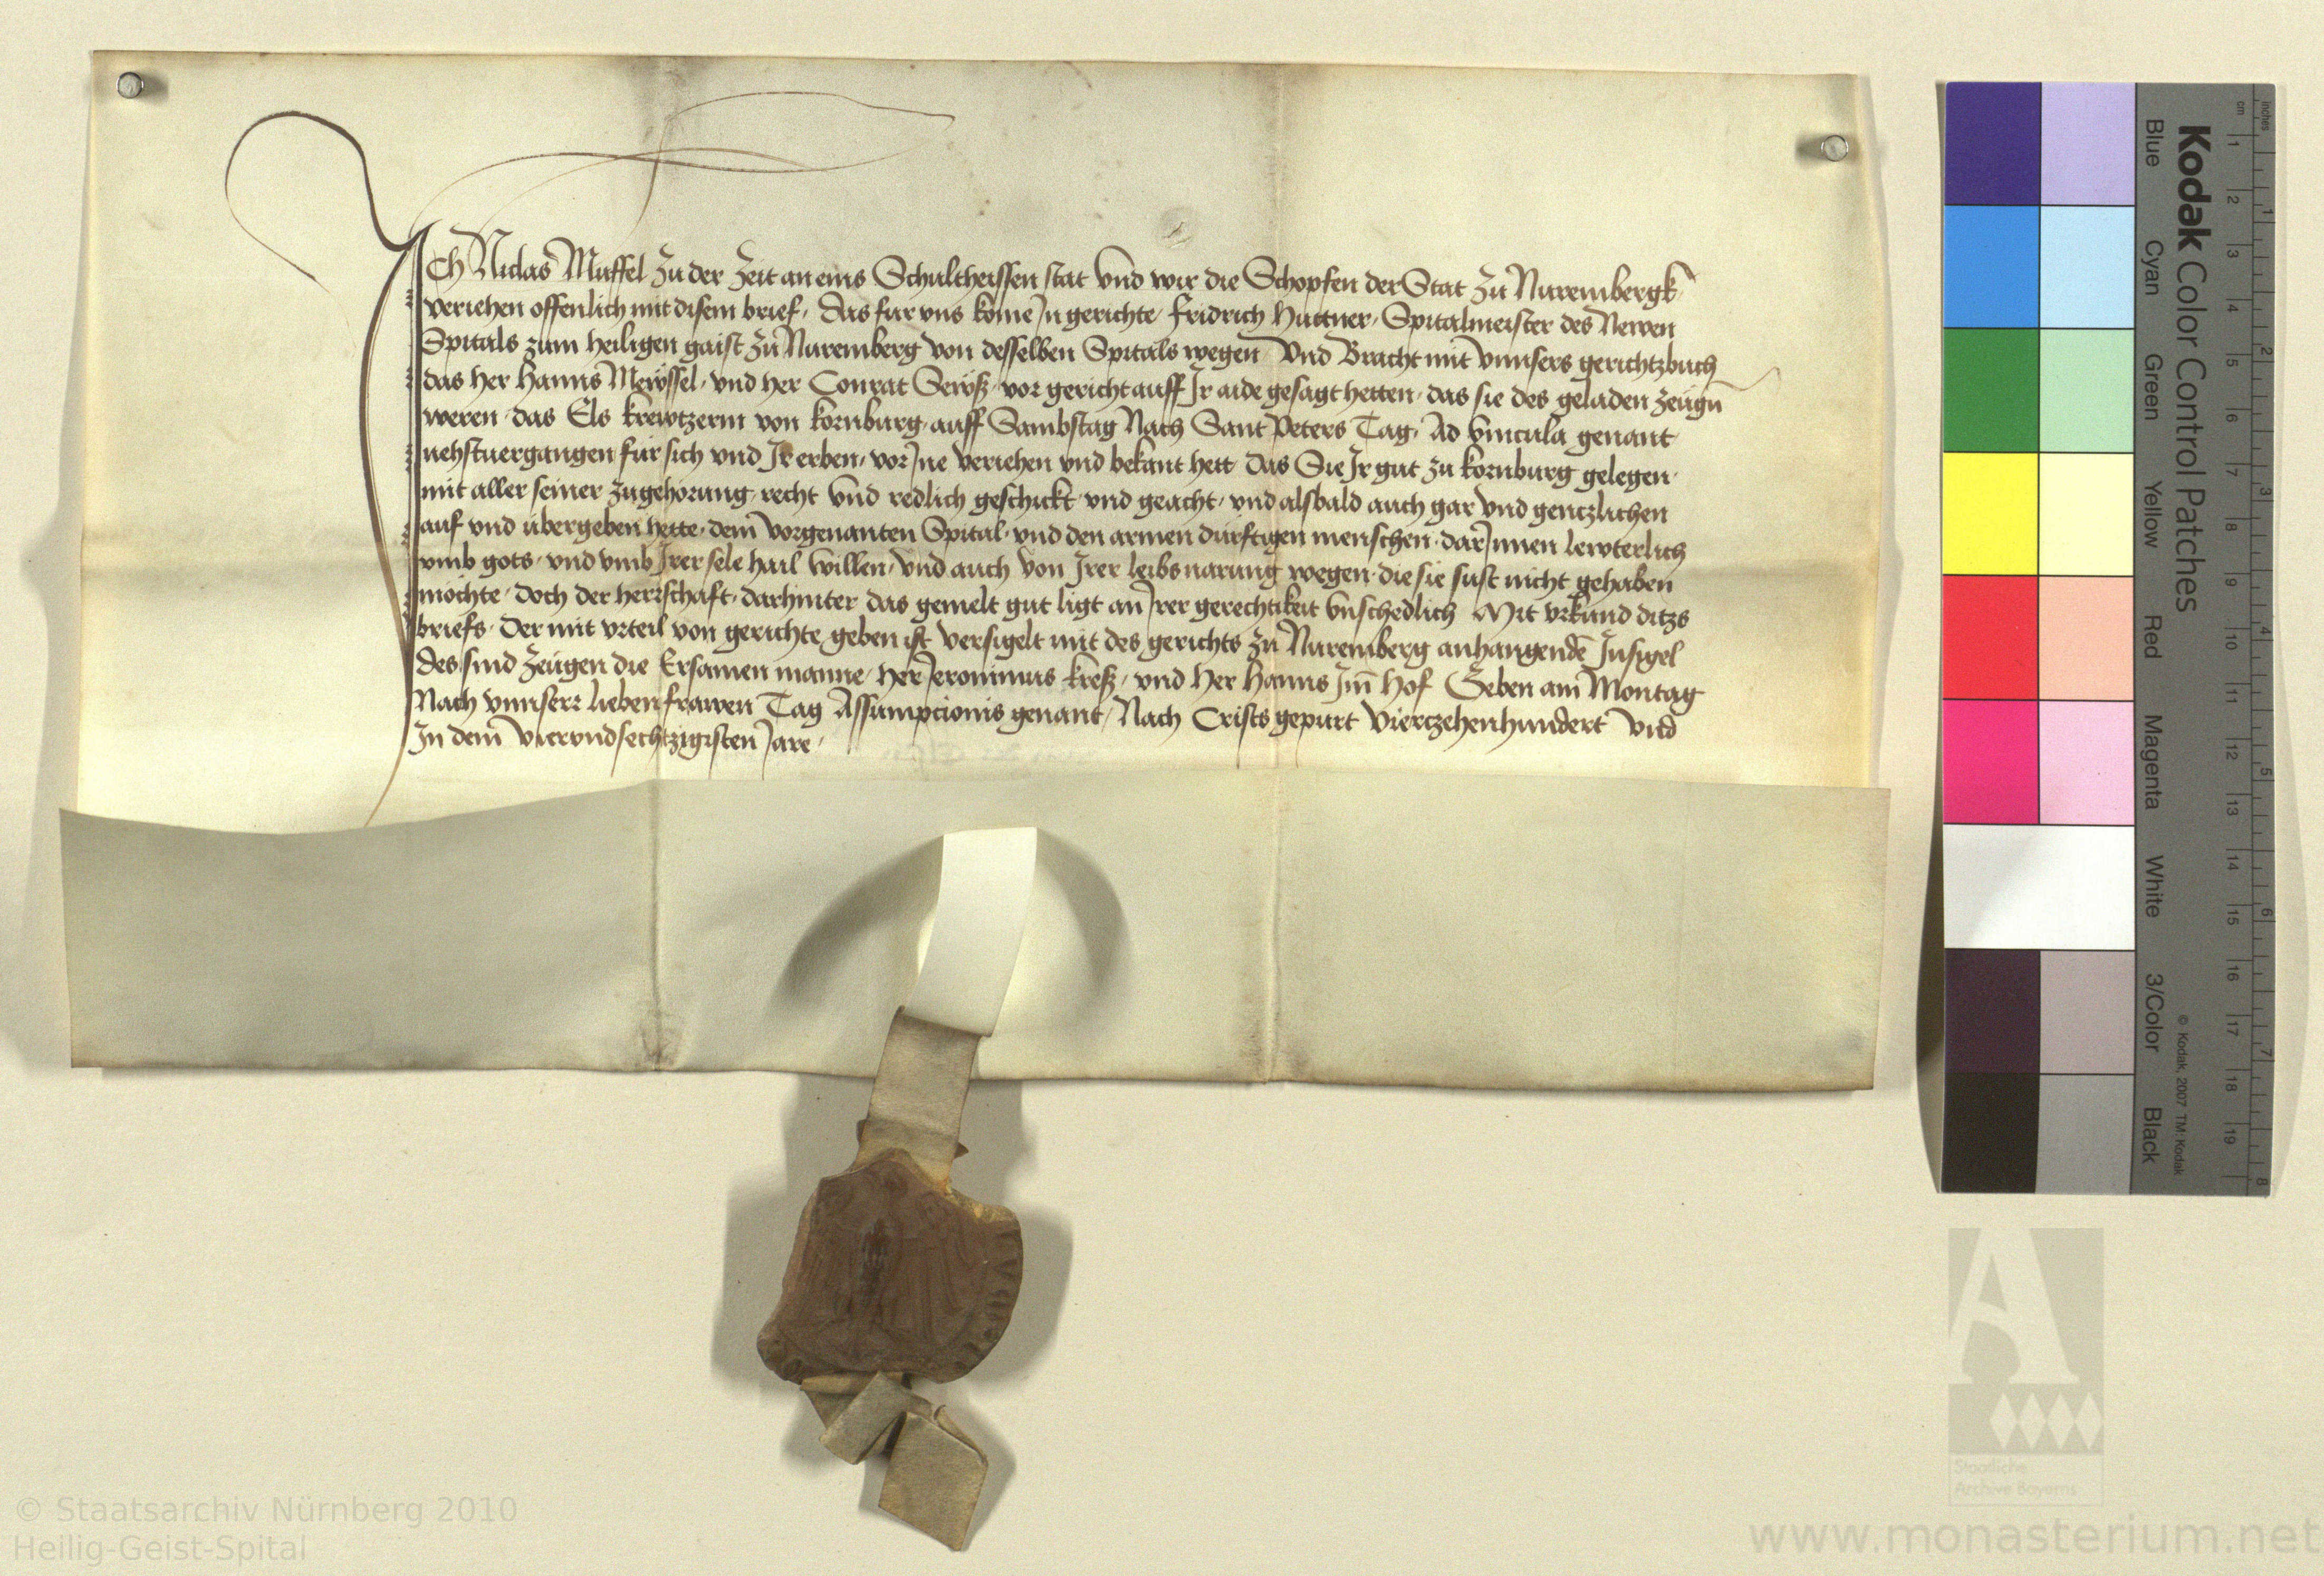 Ich Niclas Muffel zu der zeit an eins Schultheissen stat vnd wir die Schopfen der Stat zu Nurembergk
veriehen offenlich mit disem brief, das fur vns kome In gerichte fridrich huttner, Spitalmeister des Newen
Spitals zum heiligen gaist zu Nuremberg von desselben Spitals wegen Vnd Bracht mit vnnsers gerichtzbuch
das her hanns Mewssel, vnd her Conrat vor gericht auff Ir aide gesagt hetten, das sie des geladen zeugn
weren das Els krewtzerin von kornburg auff Sambstag Nach Sant Peters Tag, Ad vincula genant
nehstuergangen fur sich vnd Ir erben, vor Ine veriehen vnd bekant hett das Sie Ir gut zu kornburg gelegen
mit aller seiner zugehorung recht vnd redlich geschickt vnd geacht, vnd alsbald auch gar vnd gentzlichen
auf vnd ubergeben hette, dem vorgenanten Spital, vnd den armen durftigen menschen darInnen lewterlich
vmb gots, vnd vmb Irer sele hail willen, vnd auch von Irer leibsnarung wegen die sie sust nicht gehaben
mochte, doch der herrschaft, darhinter das gemelt gut ligt an Irer gerechtikeit vnschedlich Mit vrkund ditzs
briefs, Der mit vrteil von gerichte geben ist versigelt mit des gerichts zu Nuremberg anhangendē Insigel
des sind zeugen die Ersamen manne, her Jeronimus kreß, vnd her hanns Im̄ hof Geben am Montag
Nach vnnserr lieben frawen Tag Assumpcionis genant, Nach Crists gepurt Viertzehenhundert vnd
In dem vierundsechtzigisten Jare
Kodak Color Control Patches
Blue Cyan Green Yellow Red Magenta White 3/Color Black
© Kodak, 2007 TM: Kodak
inches 1 2 3 4 5 6 7 8
cm 1 2 3 4 5 6 7 8 9 10 11 12 13 14 15 16 17 18 19
A
Staatliche
Archive Bayerns
© Staatsarchiv Nürnberg 2010
Heilig-Geist-Spital
www.monasterium.net